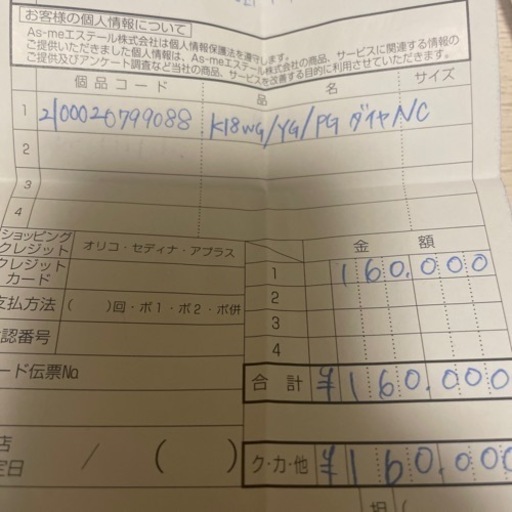 お客様の個人情報について
As-meエステール株式会社は個人情報保護法を遵守します。
ご提供いただきました個人情報は、As-meエステール株式会社の商品、サービスに関連する情報の
ご提供及びアンケート調査など当社の商品、サービスを改善する目的に利用させていただきます。
個品コード 品名 サイズ
1 2100026799088 K18WG/YG/PG ダイヤNC
2
3
4
ショッピング
クレジット オリコ・セディナ・アプラス 金額
クレジット
カード 1 160,000
支払方法 ( )回・ボ1・ボ2・ボ併 2
3
認番号 4
ード伝票No. 合計 ¥160,000
店
定日 / ( ) ク・カ・他 ¥160,000
担(